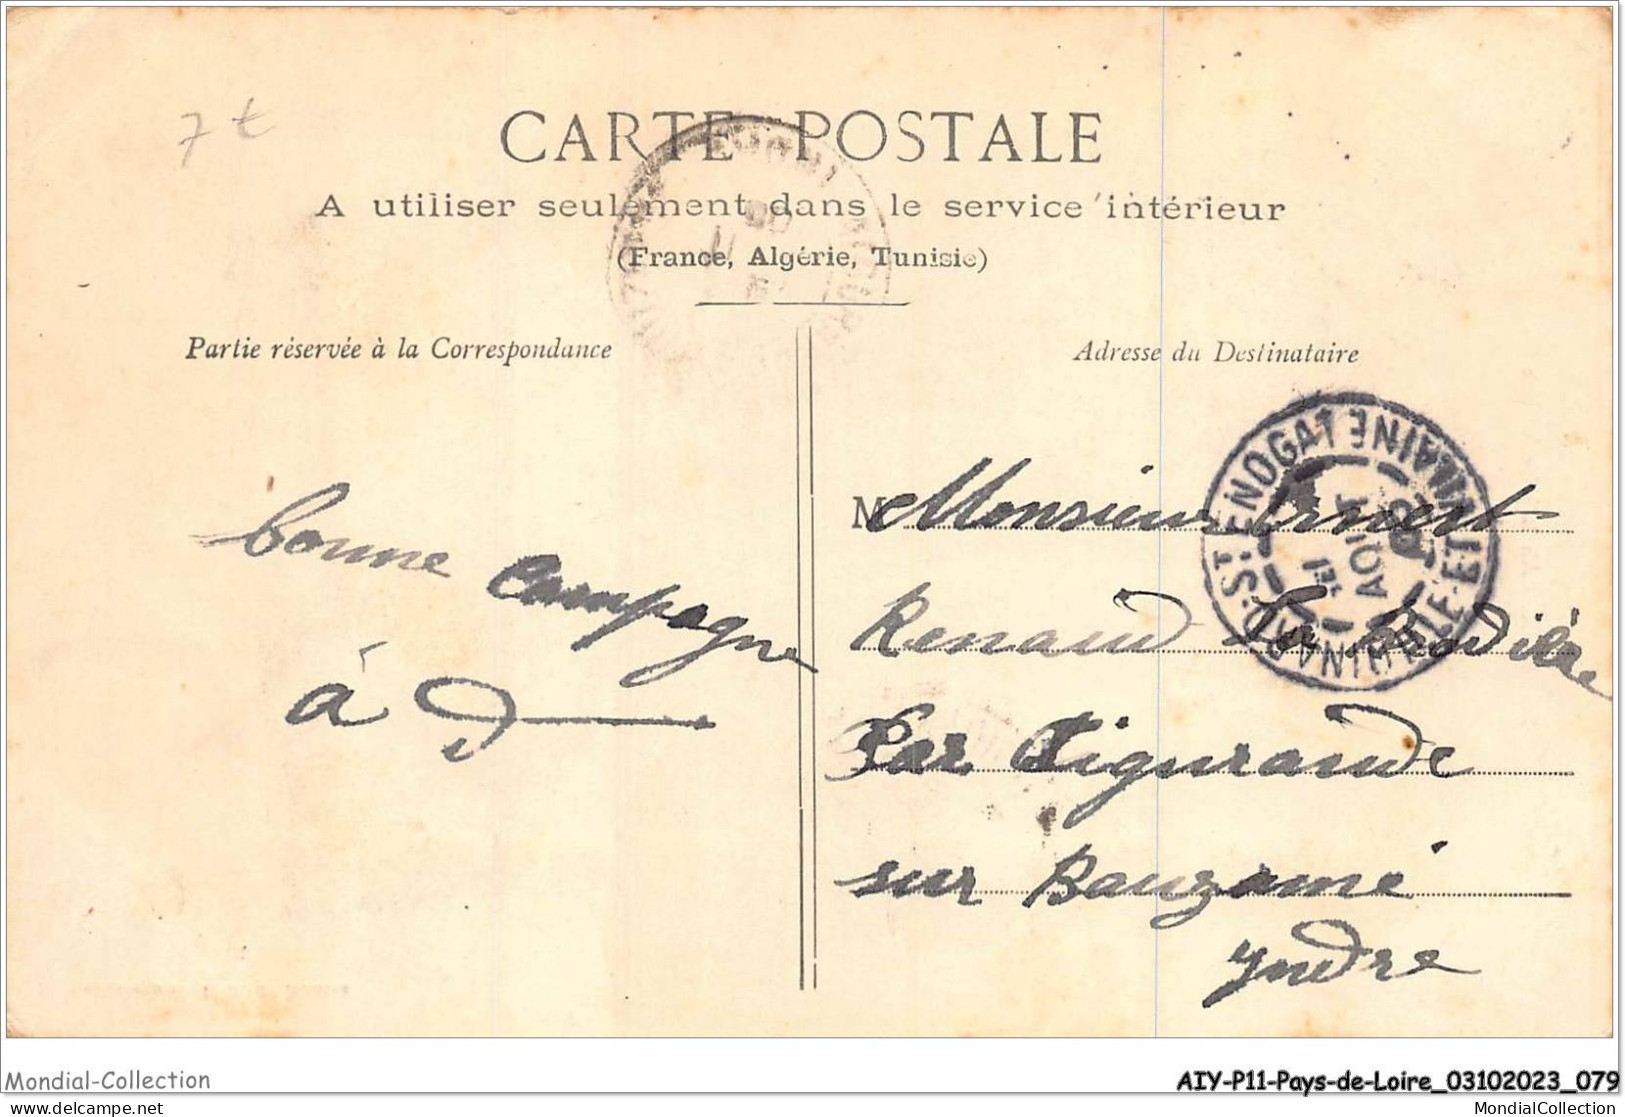 7 €
CARTE POSTALE
A utiliser seulement dans le service intérieur
(France, Algérie, Tunisie)
Partie réservée à la Correspondance
Adresse du Destinataire
bonne campagne
à D
M Monsieur Ernest
Renaud La Baudière
Par Aigurande
sur Bouzanne
Yndre
DINARD-ST ENOGAT
ILLE-ET-VILAINE
AOUT
Mondial-Collection
AIY-P11-Pays-de-Loire_03102023_079
www.delcampe.net
MondialCollection